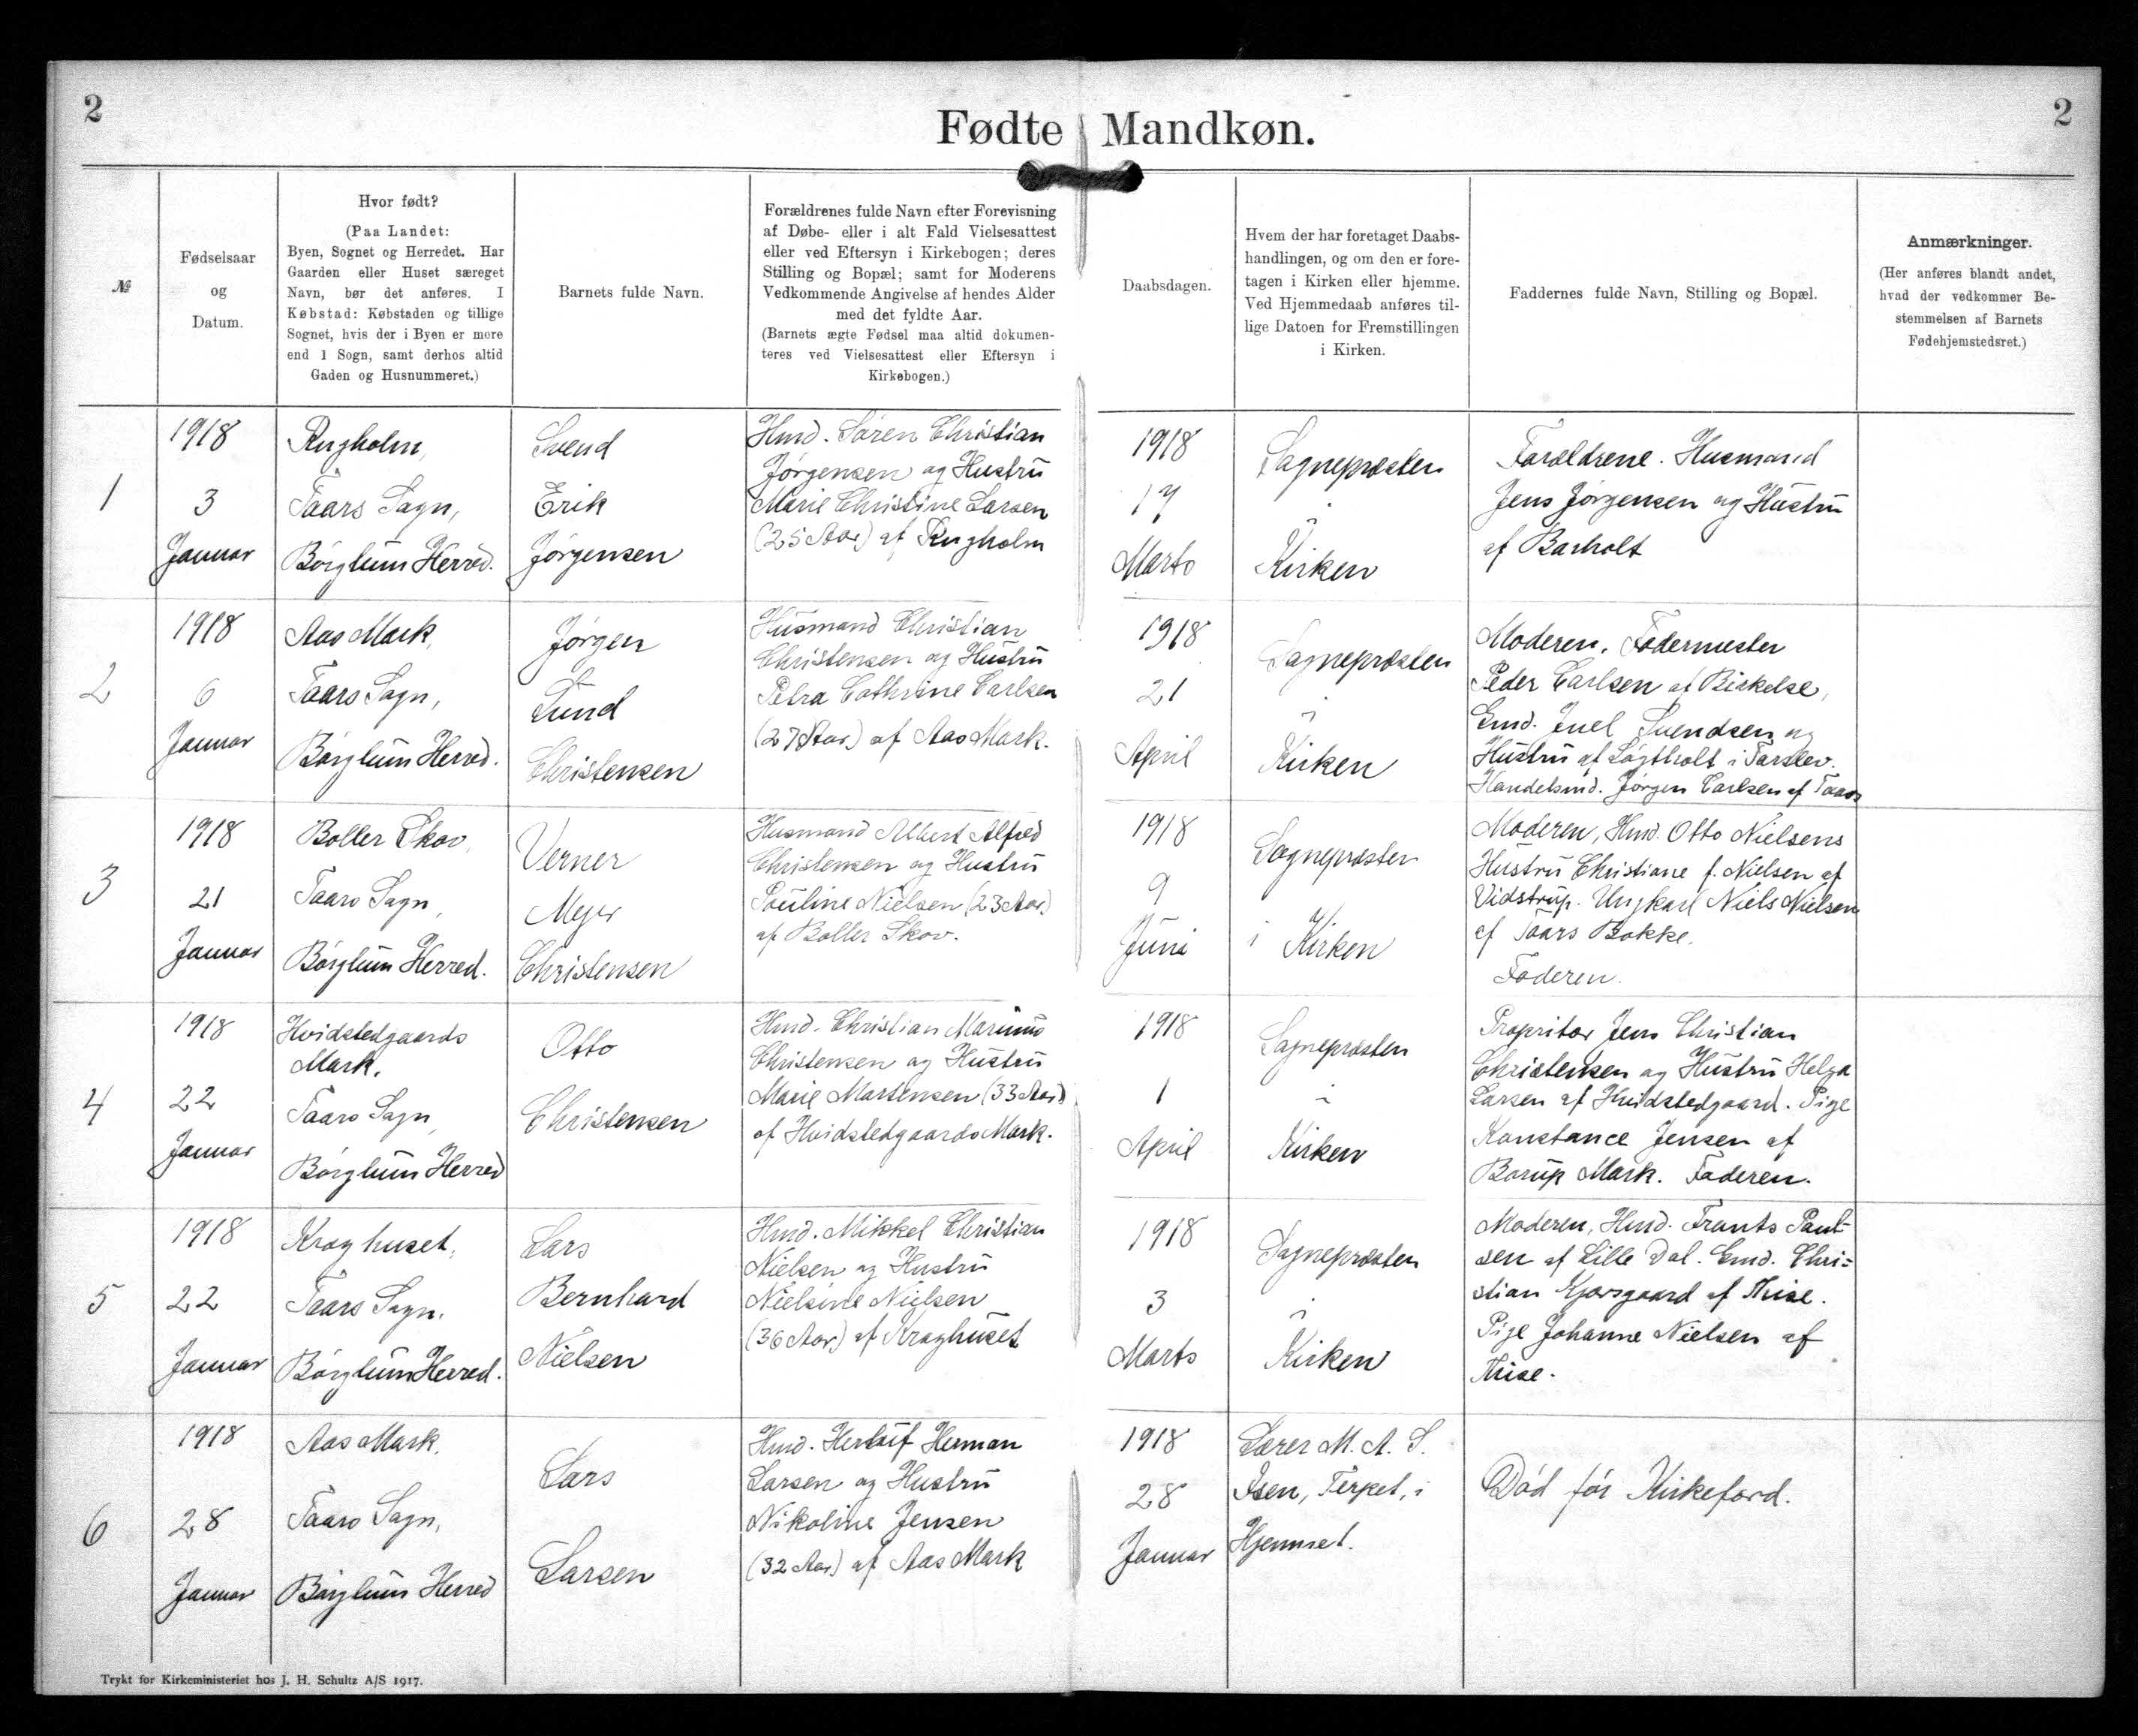 2
2
Fødte Mandkøn.
№
Fødselsaar
og
Datum.
Hvor født?
(Paa Landet:
Byen, Sognet og Herredet. Har
Gaarden eller Huset særeget
Navn, bør det anføres. I
Købstad: Købstaden og tillige
Sognet, hvis der i Byen er mere
end 1 Sogn, samt derhos altid
Gaden og Husnummeret.)
Barnets fulde Navn.
Forældrenes fulde Navn efter Forevisning
af Døbe- eller i alt Fald Vielsesattest
eller ved Eftersyn i Kirkebogen; deres
Stilling og Bopæl; samt for Moderens
Vedkommende Angivelse af hendes Alder
med det fyldte Aar.
(Barnets ægte Fødsel maa altid dokumen-
teres ved Vielsesattest eller Eftersyn i
Kirkebogen.)
Daabsdagen.
Hvem der har foretaget Daabs-
handlingen, og om den er fore-
tagen i Kirken eller hjemme.
Ved Hjemmedaab anføres til-
lige Datoen for Fremstillingen
i Kirken.
Faddernes fulde Navn, Stilling og Bopæl.
Anmærkninger.
(Her anføres blandt andet,
hvad der vedkommer Be-
stemmelsen af Barnets
Fødehjemstedsret.)
1
1918
3
Januar
Rugholm,
Taars Sogn,
Børglum Herred.
Svend
Erik
Jørgensen
Hmd. Søren Christian
Jørgensen og Hustru
Marie Christine Larsen
(25 Aar) af Rugholm
1918
17
Marts
Sognepræsten
i
Kirken
Forældrene. Husmand
Jens Jørgensen og Hustru
af Barholt
2
1918
6
Januar
Aas Mark,
Taars Sogn,
Børglum Herred.
Jørgen
Lund
Christensen
Husmand Christian
Christensen og Hustru
Petra Cathrine Carlsen
(27 Aar) af Aas Mark.
1918
21
April
Sognepræsten
i
Kirken
Moderen. Fodermester
Peder Carlsen af Birkelse,
Gmd. Juel Svendsen og
Hustru af Løgtholt i Tarslev.
Handelsmd. Jørgen Carlsen af Taars
3
1918
21
Januar
Boller Skov,
Taars Sogn,
Børglum Herred.
Verner
Mejer
Christensen
Husmand Albert Alfred
Christensen og Hustru
Pouline Nielsen (23 Aar)
af Boller Skov.
1918
9
Juni
Sognepræsten
i Kirken
Moderen, Hmd. Otto Nielsens
Hustru Christiane f. Nielsen af
Vidstrup. Ungkarl Niels Nielsen
af Taars Bakke.
Faderen.
4
1918
22
Januar
Hvidstedgaards
Mark.
Taars Sogn,
Børglum Herred
Otto
Christensen
Hmd. Christian Marinus
Christensen og Hustru
Marie Martensen (33 Aar)
af Hvidstedgaards Mark.
1918
1
April
Sognepræsten
i
Kirken
Propritær Jens Christian
Christensen og Hustru Helga
Larsen af Hvidstedgaard. Pige
Konstance Jensen af
Borup Mark. Faderen.
5
1918
22
Januar
Kraghuset,
Taars Sogn.
Børglum Herred.
Lars
Bernhard
Nielsen
Hmd. Mikkel Christian
Nielsen og Hustru
Nielsine Nielsen
(36 Aar) af Kraghuset
1918
3
Marts
Sognepræsten
i
Kirken
Moderen, Hmd. Frants Poul-
sen af Lille Dal. Gmd. Chri-
stian Kjærsgaard af Thise.
Pige Johanne Nielsen af
Thise.
6
1918
28
Januar
Aas Mark.
Taars Sogn,
Børglum Herred
Lars
Larsen
Hmd. Herluf Herman
Larsen og Hustru
Nikoline Jensen
(32 Aar) af Aas Mark
1918
28
Januar
Lærer M. A. S.
Isen, Terpet, i
Hjemmet.
Død før Kirkefærd.
Trykt for Kirkeministeriet hos J. H. Schultz A/S 1917.